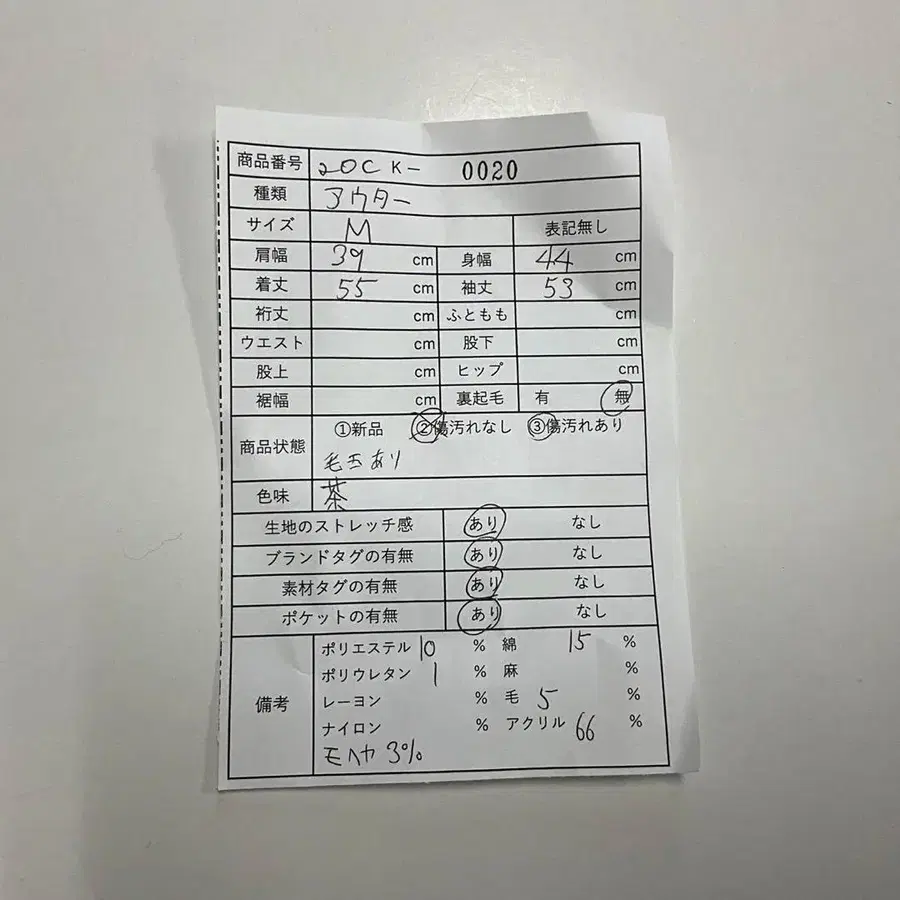 商品番号 20CK- 0020
種類 アウター
サイズ M 表記無し
肩幅 39 cm 身幅 44 cm
着丈 55 cm 袖丈 53 cm
裄丈 cm ふともも cm
ウエスト cm 股下 cm
股上 cm ヒップ cm
裾幅 cm 裏起毛 有 無
商品状態 ①新品 ②傷汚れなし ③傷汚れあり
毛玉あり
色味 茶
生地のストレッチ感 あり なし
ブランドタグの有無 あり なし
素材タグの有無 あり なし
ポケットの有無 あり なし
備考 ポリエステル 10 % 綿 15 %
ポリウレタン 1 % 麻 %
レーヨン % 毛 5 %
ナイロン % アクリル 66 %
モヘヤ 3%